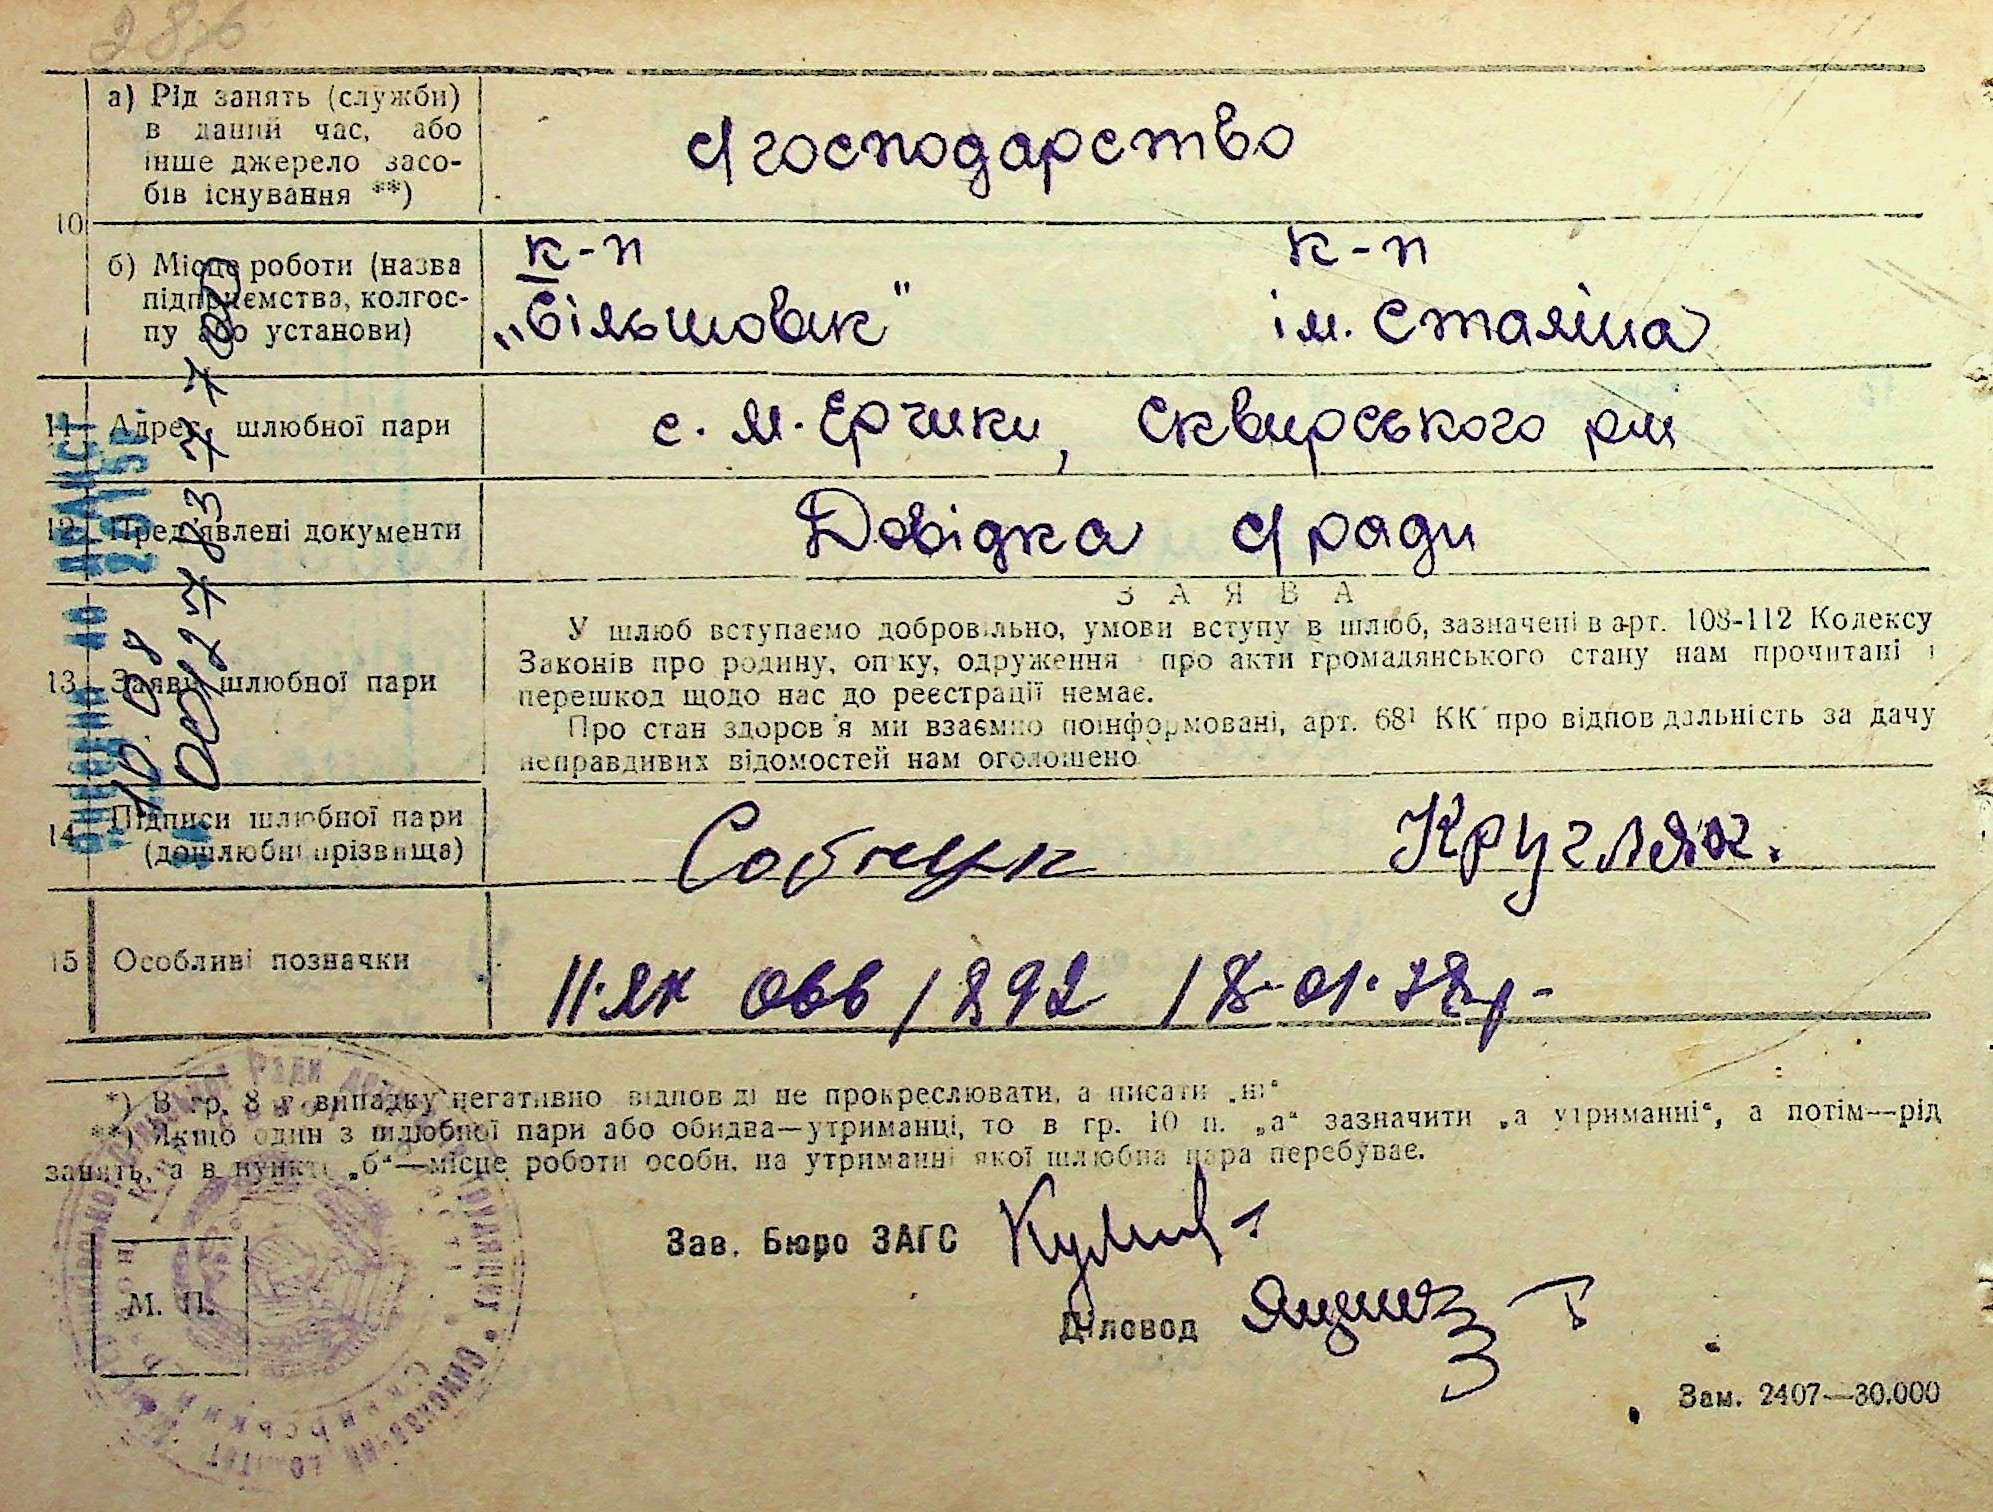 286
10
а) Рід занять (служби)
в даний час, або
інше джерело засо-
бів існування **)
с/господарство
б) Місце роботи (назва
підприємства, колгос-
пу або установи)
к-п
„Більшовик"
к-п
ім. Сталіна
11 Адреса шлюбної пари
с. М. Єрчики, Сквирського р-ні
12 Пред'явлені документи
Довідка с/ради
13 Заяви шлюбної пари
ЗАЯВА
У шлюб вступаємо добровільно, умови вступу в шлюб, зазначені в арт. 108-112 Кодексу
Законів про родину, опіку, одруження і про акти громадянського стану нам прочитані і
перешкод щодо нас до реєстрації немає.
Про стан здоров'я ми взаємно поінформовані, арт. 68¹ КК про відповідальність за дачу
неправдивих відомостей нам оголошено
14 Підписи шлюбної пари
(дошлюбні прізвища)
Кругляк.
15 Особливі позначки
1892 18.01.
*) В гр. 8 у випадку негативно відповіді не прокреслювати, а писати „ні"
**) Якщо один з шлюбної пари або обидва—утриманці, то в гр. 10 п. „а" зазначити „а утриманні", а потім—рід
занять, а в пункті „б"—місце роботи особи, на утриманні якої шлюбна пара перебуває.
Зав. Бюро ЗАГС
Діловод
М. П.
Зам. 2407—30.000
АРКУШ
2015
10.08
00127837700